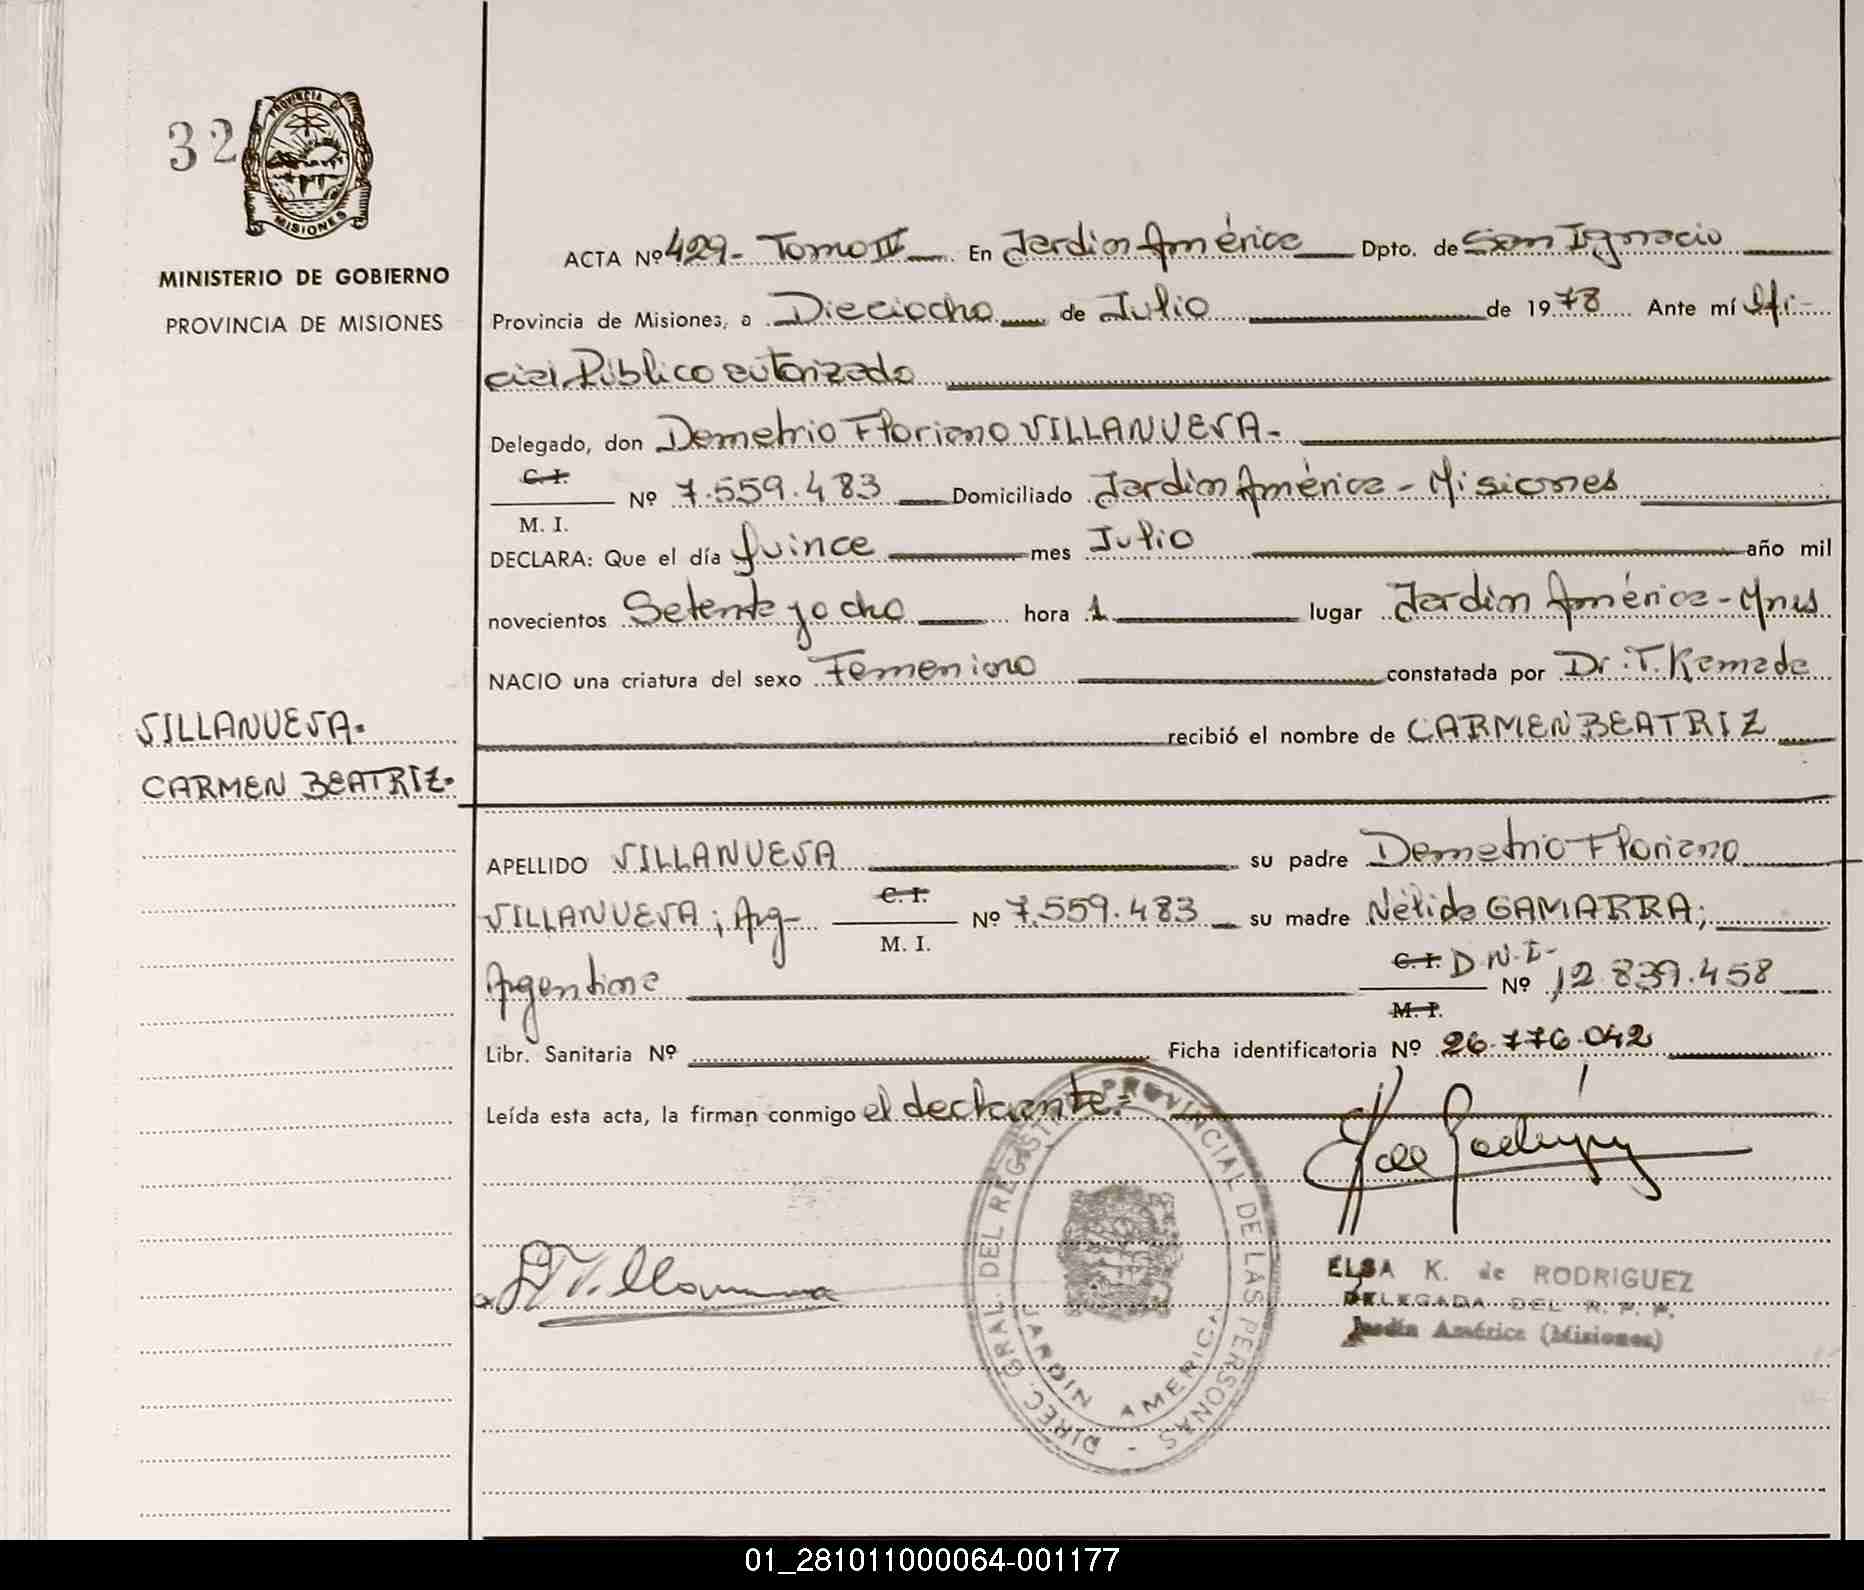 32
PROVINCIA DE
MISIONES
MINISTERIO DE GOBIERNO
PROVINCIA DE MISIONES
VILLANUEVA.
CARMEN BEATRIZ.
ACTA Nº 429- Tomo IV En Jardin América Dpto. de San Ignacio
Provincia de Misiones, a Dieciocho de Julio de 1978 Ante mí Ofi-
cial Público autorizado
Delegado, don Demetrio Floriano VILLANUEVA-
C. I.
Nº 7.559.483 Domiciliado Jardin América - Misiones
M. I.
DECLARA: Que el día quince mes Julio año mil
novecientos Setenta y ocho hora 1 lugar Jardin América - Mnes
NACIO una criatura del sexo Femenino constatada por Dr. T. Kamada
recibió el nombre de CARMEN BEATRIZ
APELLIDO VILLANUEVA su padre Demetrio Floriano
C. I.
VILLANUEVA; Arg- Nº 7.559.483 su madre Nélida GAMARRA;
M. I.
C. I. D.N.I-
Argentina Nº 12.839.458
M. I.
Libr. Sanitaria Nº Ficha identificatoria Nº 26.776.042
Leída esta acta, la firman conmigo el declarante.=
DIREC. GRAL. DEL REGISTRO PROVINCIAL DE LAS PERSONAS -
JARDIN AMERICA
ELSA K. de RODRIGUEZ
DELEGADA DEL R. P. P.
Jardín América (Misiones)
01_281011000064-001177